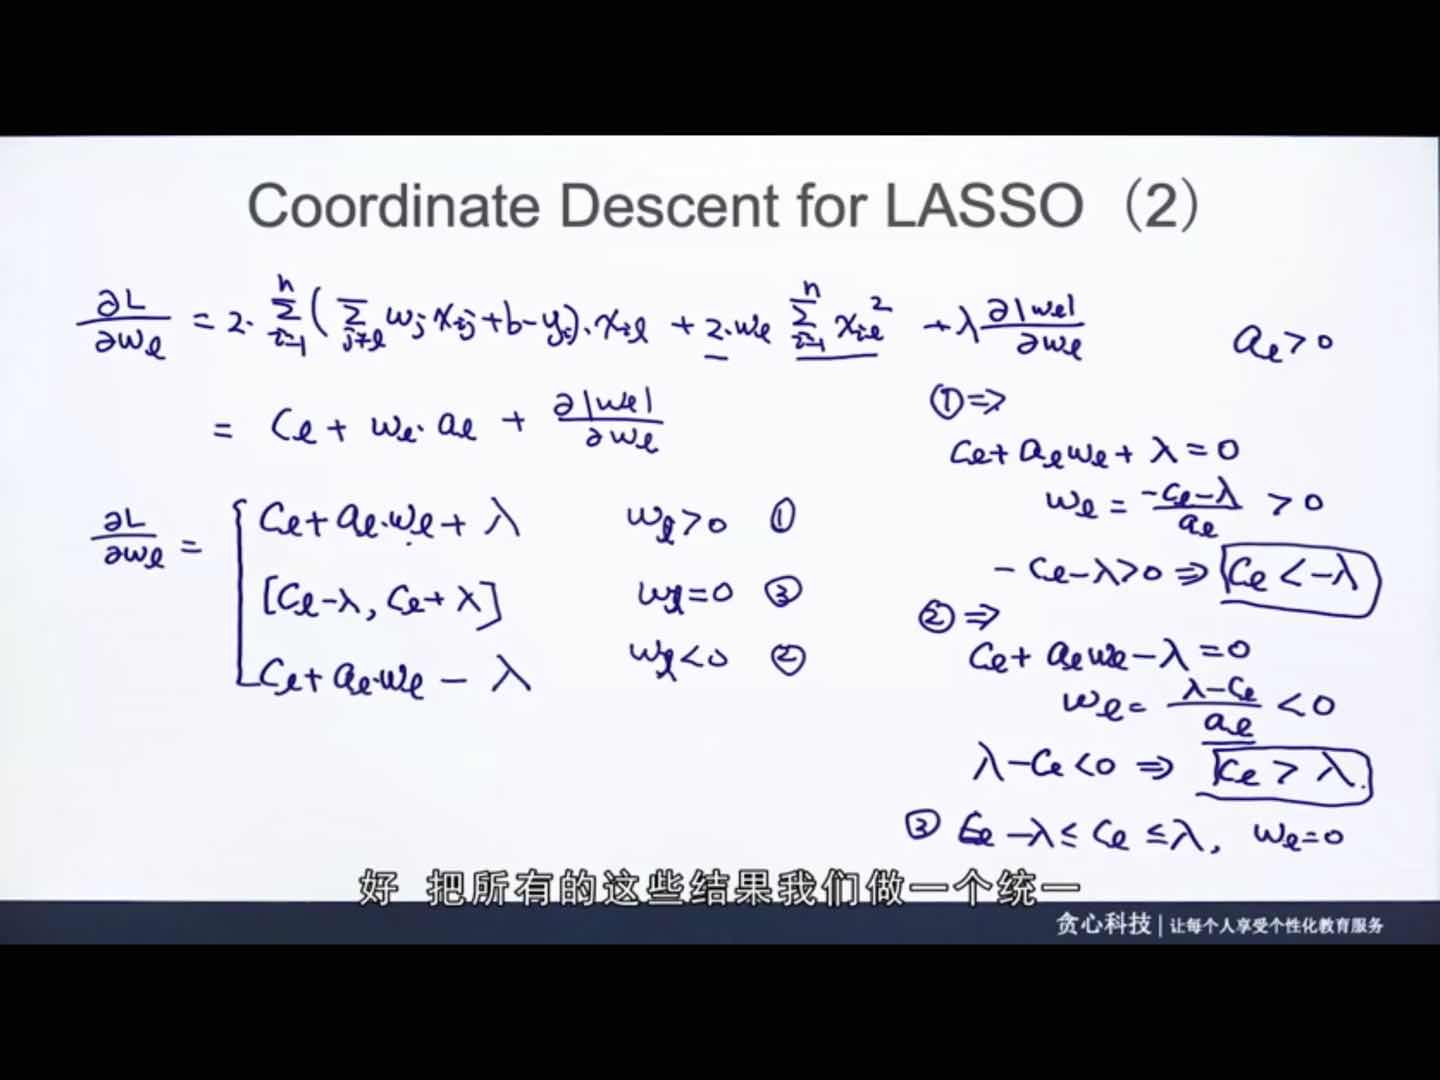 Coordinate Descent for LASSO（2）
∂L/∂wℓ = 2·∑ⁿᵢ₌₁(∑_{j≠ℓ} wⱼxᵢⱼ+b-yᵢ)·xᵢℓ + 2·wℓ ∑ⁿᵢ₌₁ xᵢℓ² + λ ∂|wℓ|/∂wℓ
aℓ>0
= Cℓ + wℓ·aℓ + ∂|wℓ|/∂wℓ
∂L/∂wℓ =
Cℓ+aℓ·wℓ+λ wℓ>0 ①
[Cℓ-λ, Cℓ+λ] wℓ=0 ③
Cℓ+aℓ·wℓ-λ wℓ<0 ②
①⇒
Cℓ+aℓwℓ+λ=0
wℓ = (-Cℓ-λ)/aℓ >0
-Cℓ-λ>0 ⇒ Cℓ<-λ
②⇒
Cℓ+aℓwℓ-λ=0
wℓ= (λ-Cℓ)/aℓ <0
λ-Cℓ<0 ⇒ Cℓ>λ.
③ Cℓ -λ≤Cℓ≤λ, wℓ=0
好 把所有的这些结果我们做一个统一
贪心科技 | 让每个人享受个性化教育服务